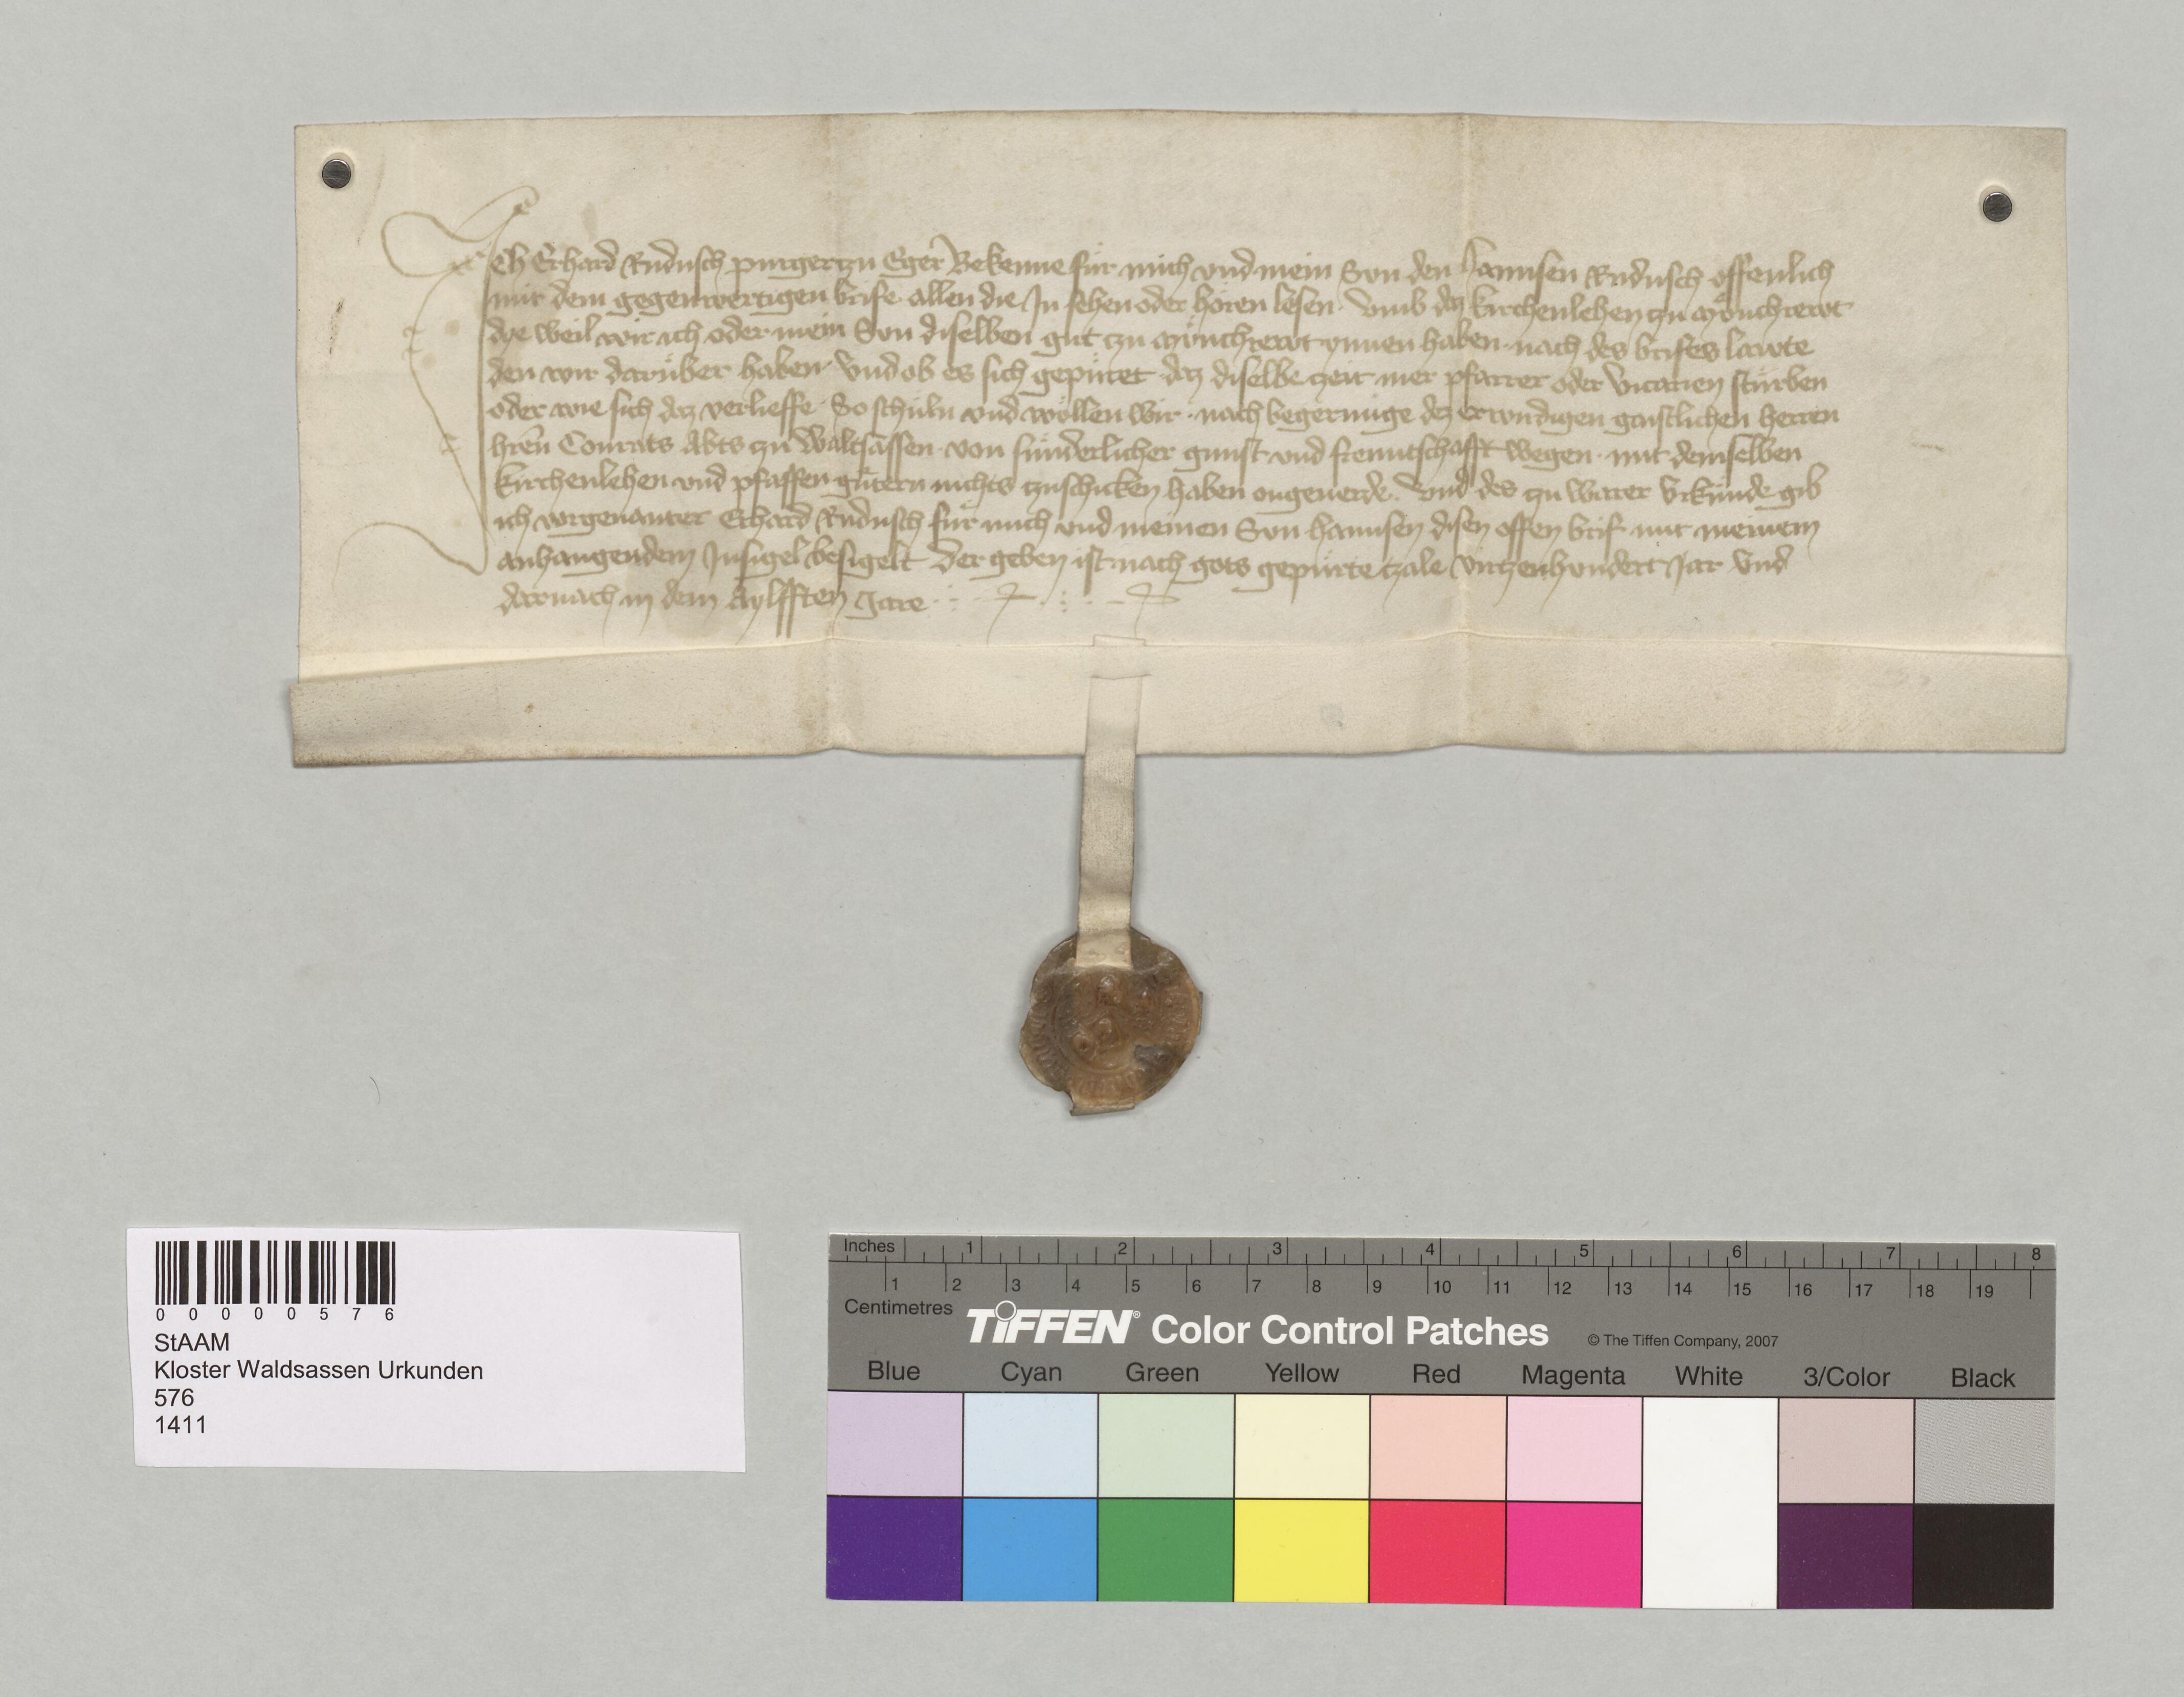 Ich Erhard Rudusch purger zu Eger Bekenne für mich vnd mein Son den Hannsen Rudusch offenlich
mit dem gegenwertigen brife allen die Jn sehen oder hören lesen. Vmb dz kirchenlehen zu Mönchrewt
dye weil wir ich oder mein Son diselben gut zu Mönchrewt ynnen haben nach des brifes lawte
den wir darüber haben Vnd ob es sich gepüret dz diselbe zeit mer pfarrer oder vicarien stürben
oder wie sich dz verlieffe So schüln vnd wöllen wir nach begerunge dez erwirdigen geistlichen herren
hren Conrats Abts zu Waltsassen von sünderlicher gunst vnd freuntschafft wegen mit demselben
kirchenlehen vnd pfaffen gütern nichts zuschicken haben ongeuerde. Vnd des zu warer Vrkünde gib
ich vorgenanter Erhard Rudusch für mich vnd meinen Son hannsen disen offen brif mit meinem
anhangendem Jnsigel besigelt Der geben ist nach gots gepürte tzale virtzenhundert Jar Vnd
darnach in dem Aylfften Jare
0 0 0 0 0 5 7 6
StAAM
Kloster Waldsassen Urkunden
576
1411
Inches 1 2 3 4 5 6 7 8
1 2 3 4 5 6 7 8 9 10 11 12 13 14 15 16 17 18 19
Centimetres
TIFFEN® Color Control Patches © The Tiffen Company, 2007
Blue Cyan Green Yellow Red Magenta White 3/Color Black